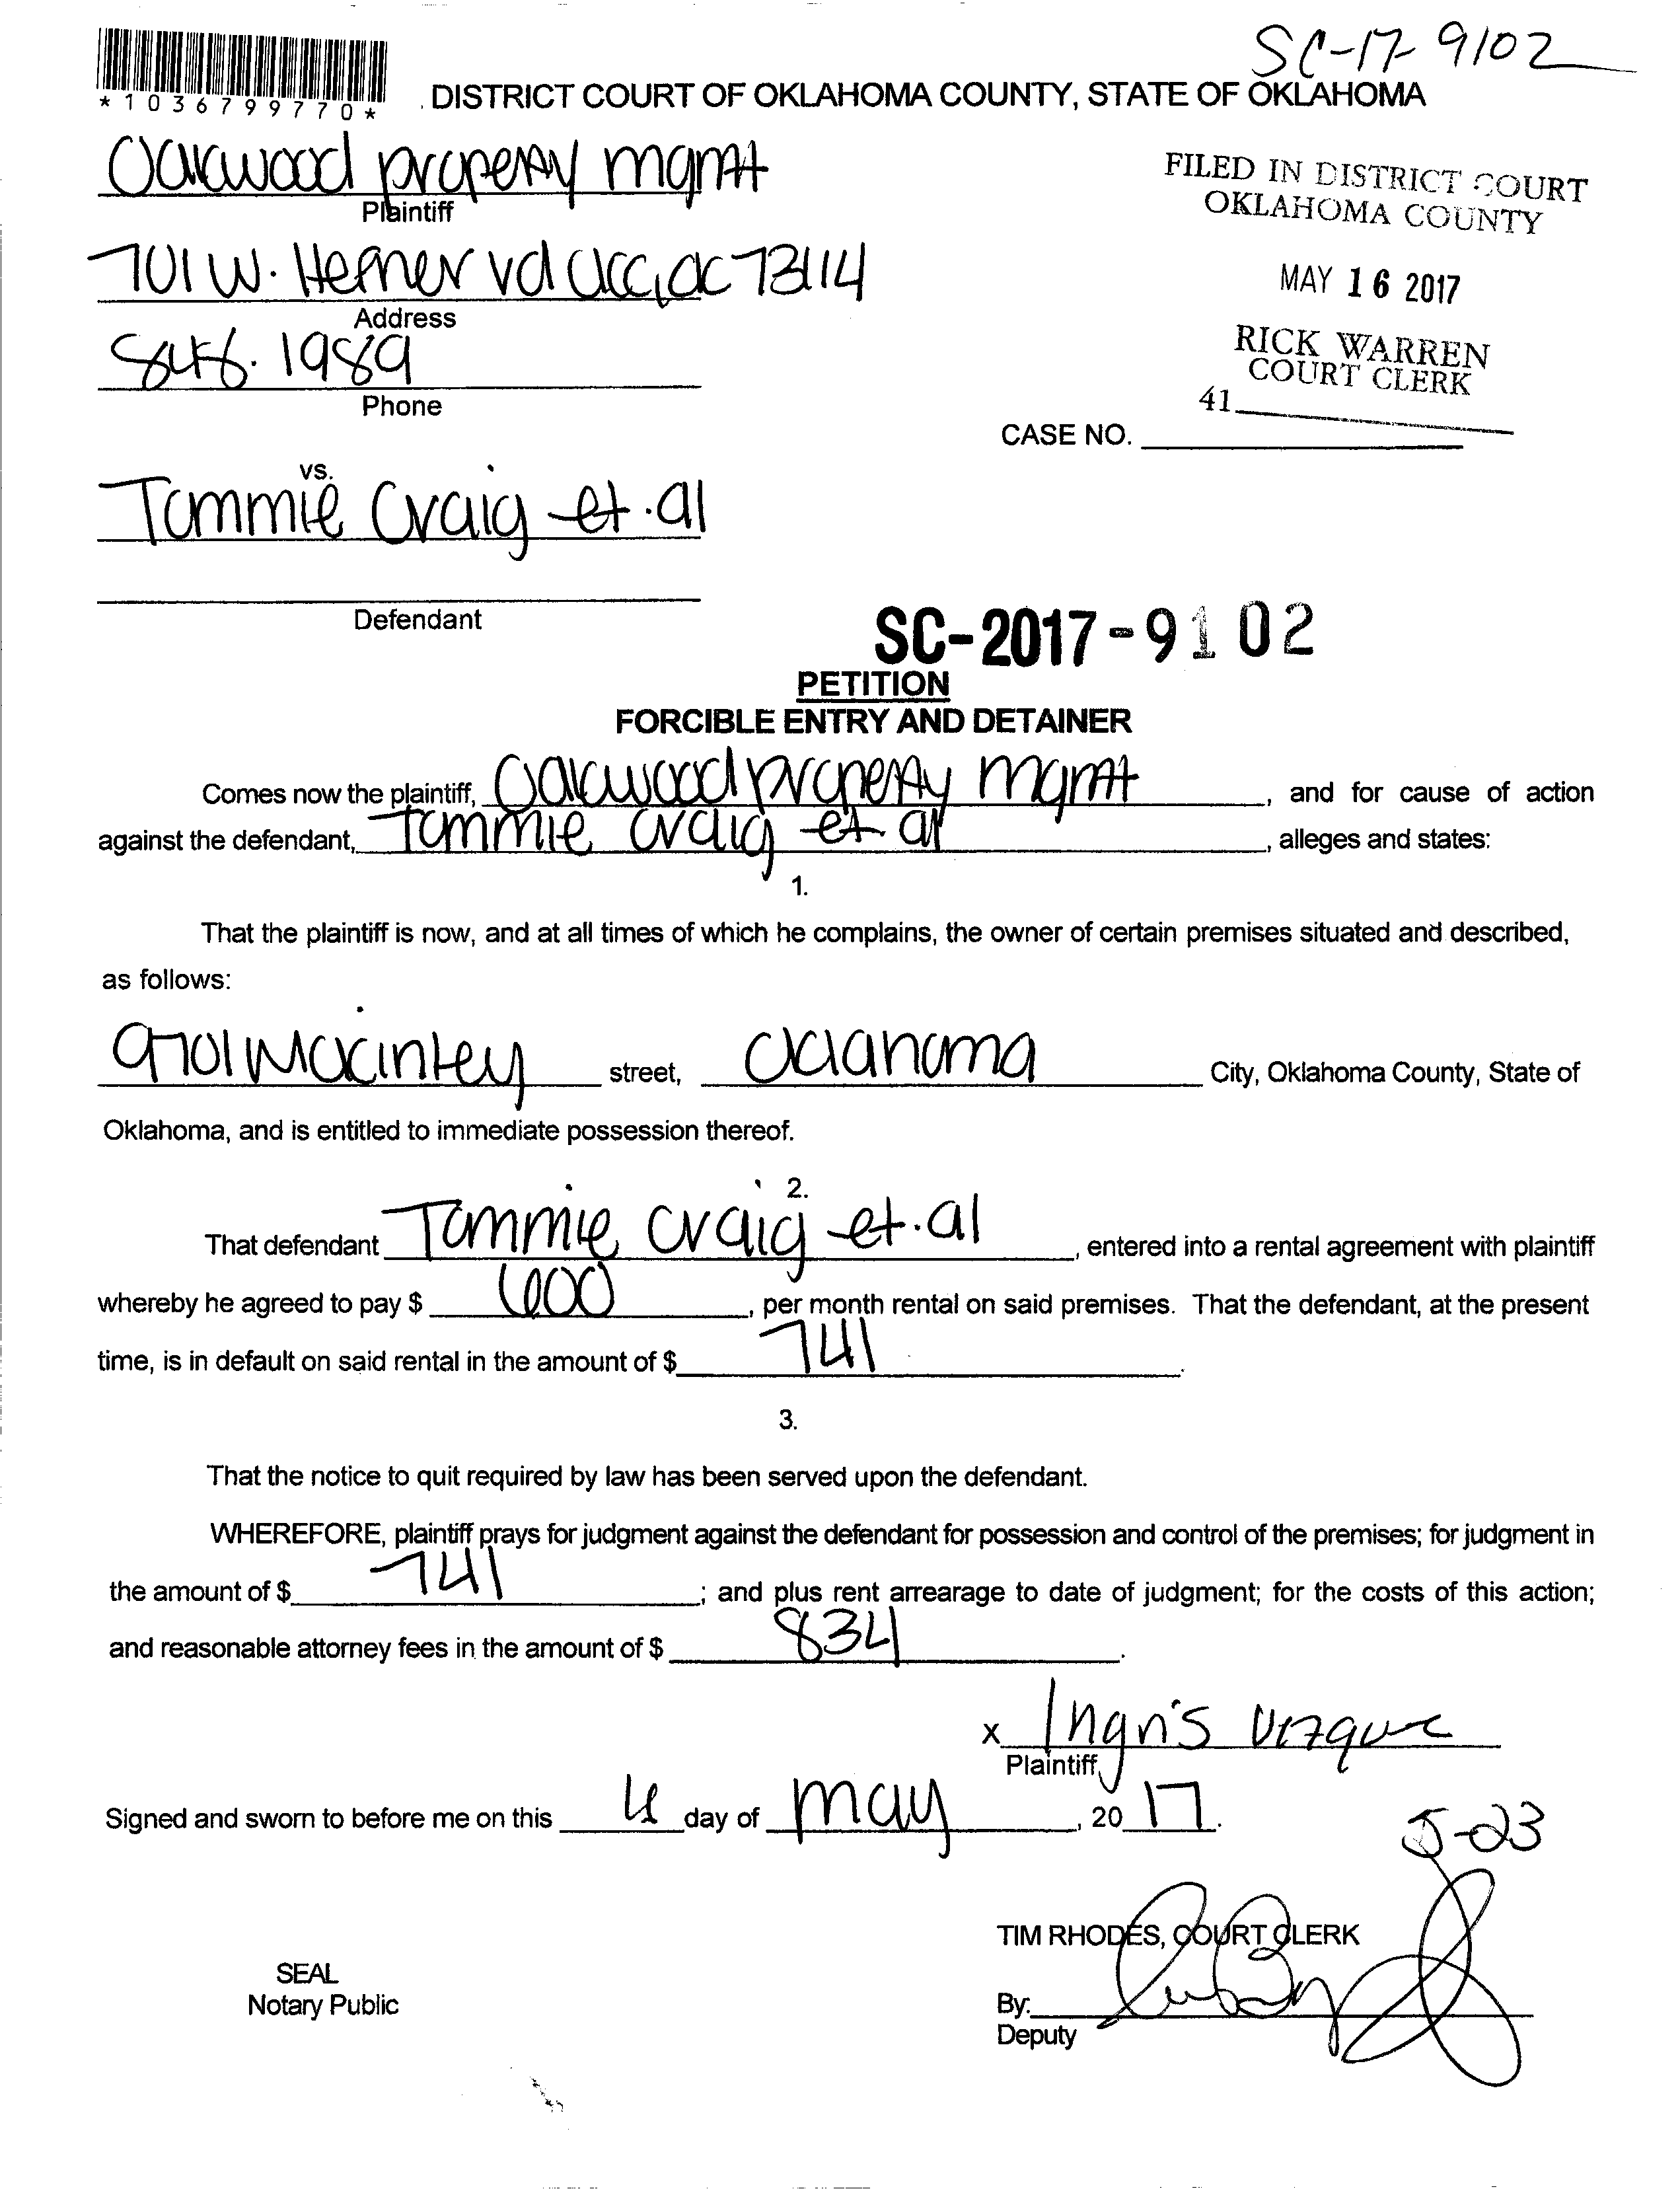 SC-17-9102
*1036799770*
DISTRICT COURT OF OKLAHOMA COUNTY, STATE OF OKLAHOMA
Oakwood property mgmt
Plaintiff
FILED IN DISTRICT COURT
OKLAHOMA COUNTY
701 W. Hefner rd OKC, OK 73114
Address
MAY 16 2017
848.1989
Phone
RICK WARREN
COURT CLERK
41
CASE NO.
vs.
Tommie Craig et.al
Defendant
SC-2017-9102
PETITION
FORCIBLE ENTRY AND DETAINER
Comes now the plaintiff, Oakwood property mgmt, and for cause of action
against the defendant, Tommie Craig et al, alleges and states:
1.
That the plaintiff is now, and at all times of which he complains, the owner of certain premises situated and described,
as follows:
9701 Mckinley street, Oklahoma City, Oklahoma County, State of
Oklahoma, and is entitled to immediate possession thereof.
2.
That defendant Tommie Craig et.al, entered into a rental agreement with plaintiff
whereby he agreed to pay $ 600, per month rental on said premises. That the defendant, at the present
time, is in default on said rental in the amount of $ 741.
3.
That the notice to quit required by law has been served upon the defendant.
WHEREFORE, plaintiff prays for judgment against the defendant for possession and control of the premises; for judgment in
the amount of $ 741; and plus rent arrearage to date of judgment; for the costs of this action;
and reasonable attorney fees in the amount of $ 834.
X
Plaintiff
Signed and sworn to before me on this day of may, 2017.
5-23
TIM RHODES, COURT CLERK
SEAL
Notary Public
By:
Deputy